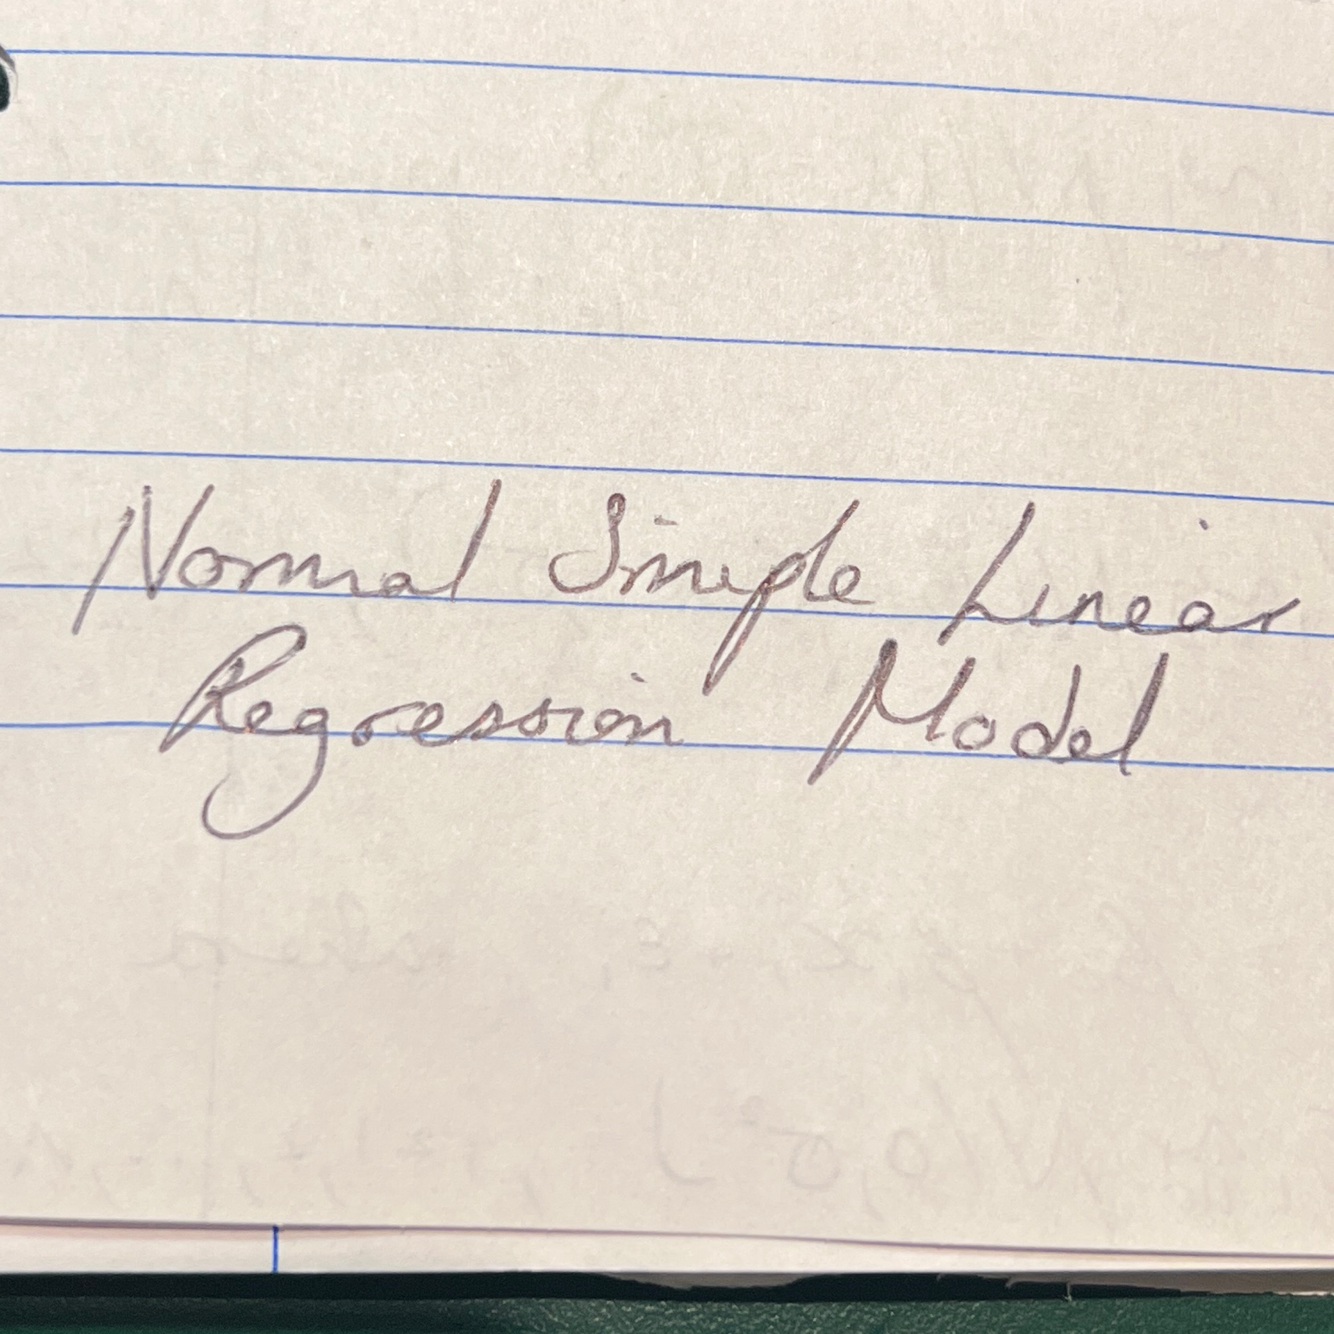 Normal Simple Linear
Regression Model